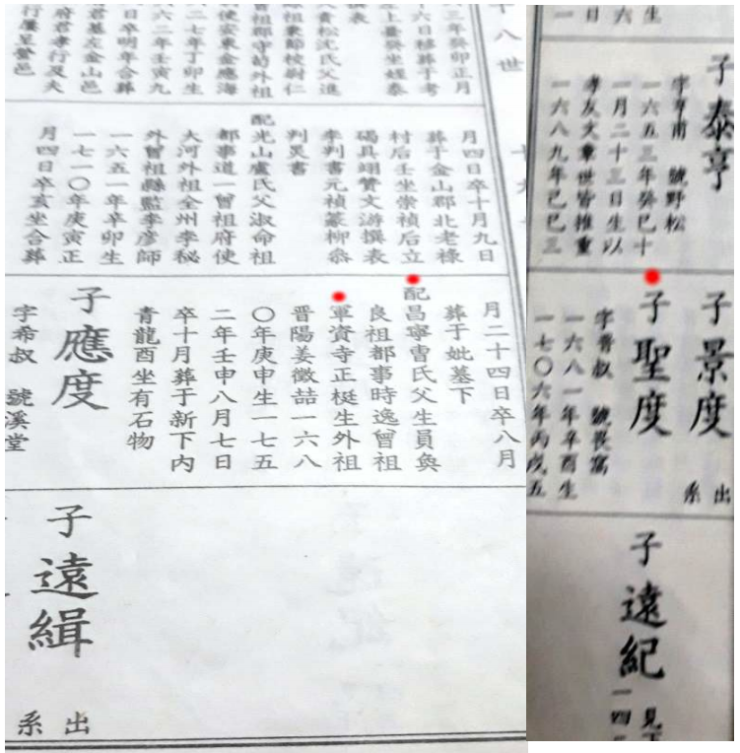 子泰亨
字亨甫 號野松
一六五三年癸巳十
一月二十三日生以
孝友文章世皆推重
一六八九年己巳三
子景度 出系
子聖度
字晋叔 號畏窩
一六八一年辛酉生
一七〇六年丙戌五
子遠紀
見
一四
十八世
三年癸卯正月
十六日移葬于考
撰表
松沈氏父進
祖秉節校尉仁
祖郡守苟外祖
使安東金應海
二七年丁卯生
六二年壬寅九
日卒明年合葬
君墓左金山邑
府君孝行及夫
行屢呈營邑
月四日卒十月九日
葬于金山郡北老祿
村后壬坐崇禎后立
碣具翊贊文游撰表
李判書元禎篆柳
判炅書
配光山盧氏父淑命祖
都事道一曾祖府使
大河外祖全州李秘
外曾祖縣監李彦師
一六五一年辛卯生
一七一〇年庚寅正
月四日卒亥坐合葬
月二十四日卒八月
葬于妣墓下
配昌寧曺氏父生員奐
良祖都事時逸曾祖
軍資寺正梃生外祖
晋陽姜徵喆一六八
〇年庚申生一七五
二年壬申八月七日
卒十月葬于新下內
青龍酉坐有石物
子應度
字希叔 號溪堂
子遠緝 出系